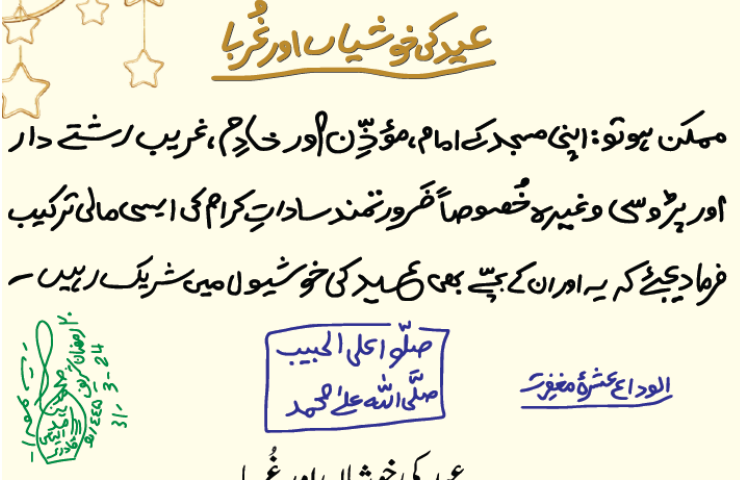 عید کی خوشیاں اور غُربا
ممکن ہو تو: اپنی مسجد کے امام، مؤذِّن اور خادِم، غریب رشتے دار
اور پڑوسی وغیرہ خُصوصاً ضَرورتمند ساداتِ کرام کی ایسی مالی ترکیب
فرما دیجئے کہ یہ اور ان کے بچّے بھی عید کی خوشیوں میں شریک رہیں۔
صلُّوا علی الحبیب
صلَّی اللہ علیٰ محمد
الوداع عشرۂ مغفِرت
۲۰ رمضان شریف
۱۴۴۵ھ
31-3-24
عید کی خوشیاں اور غُربا